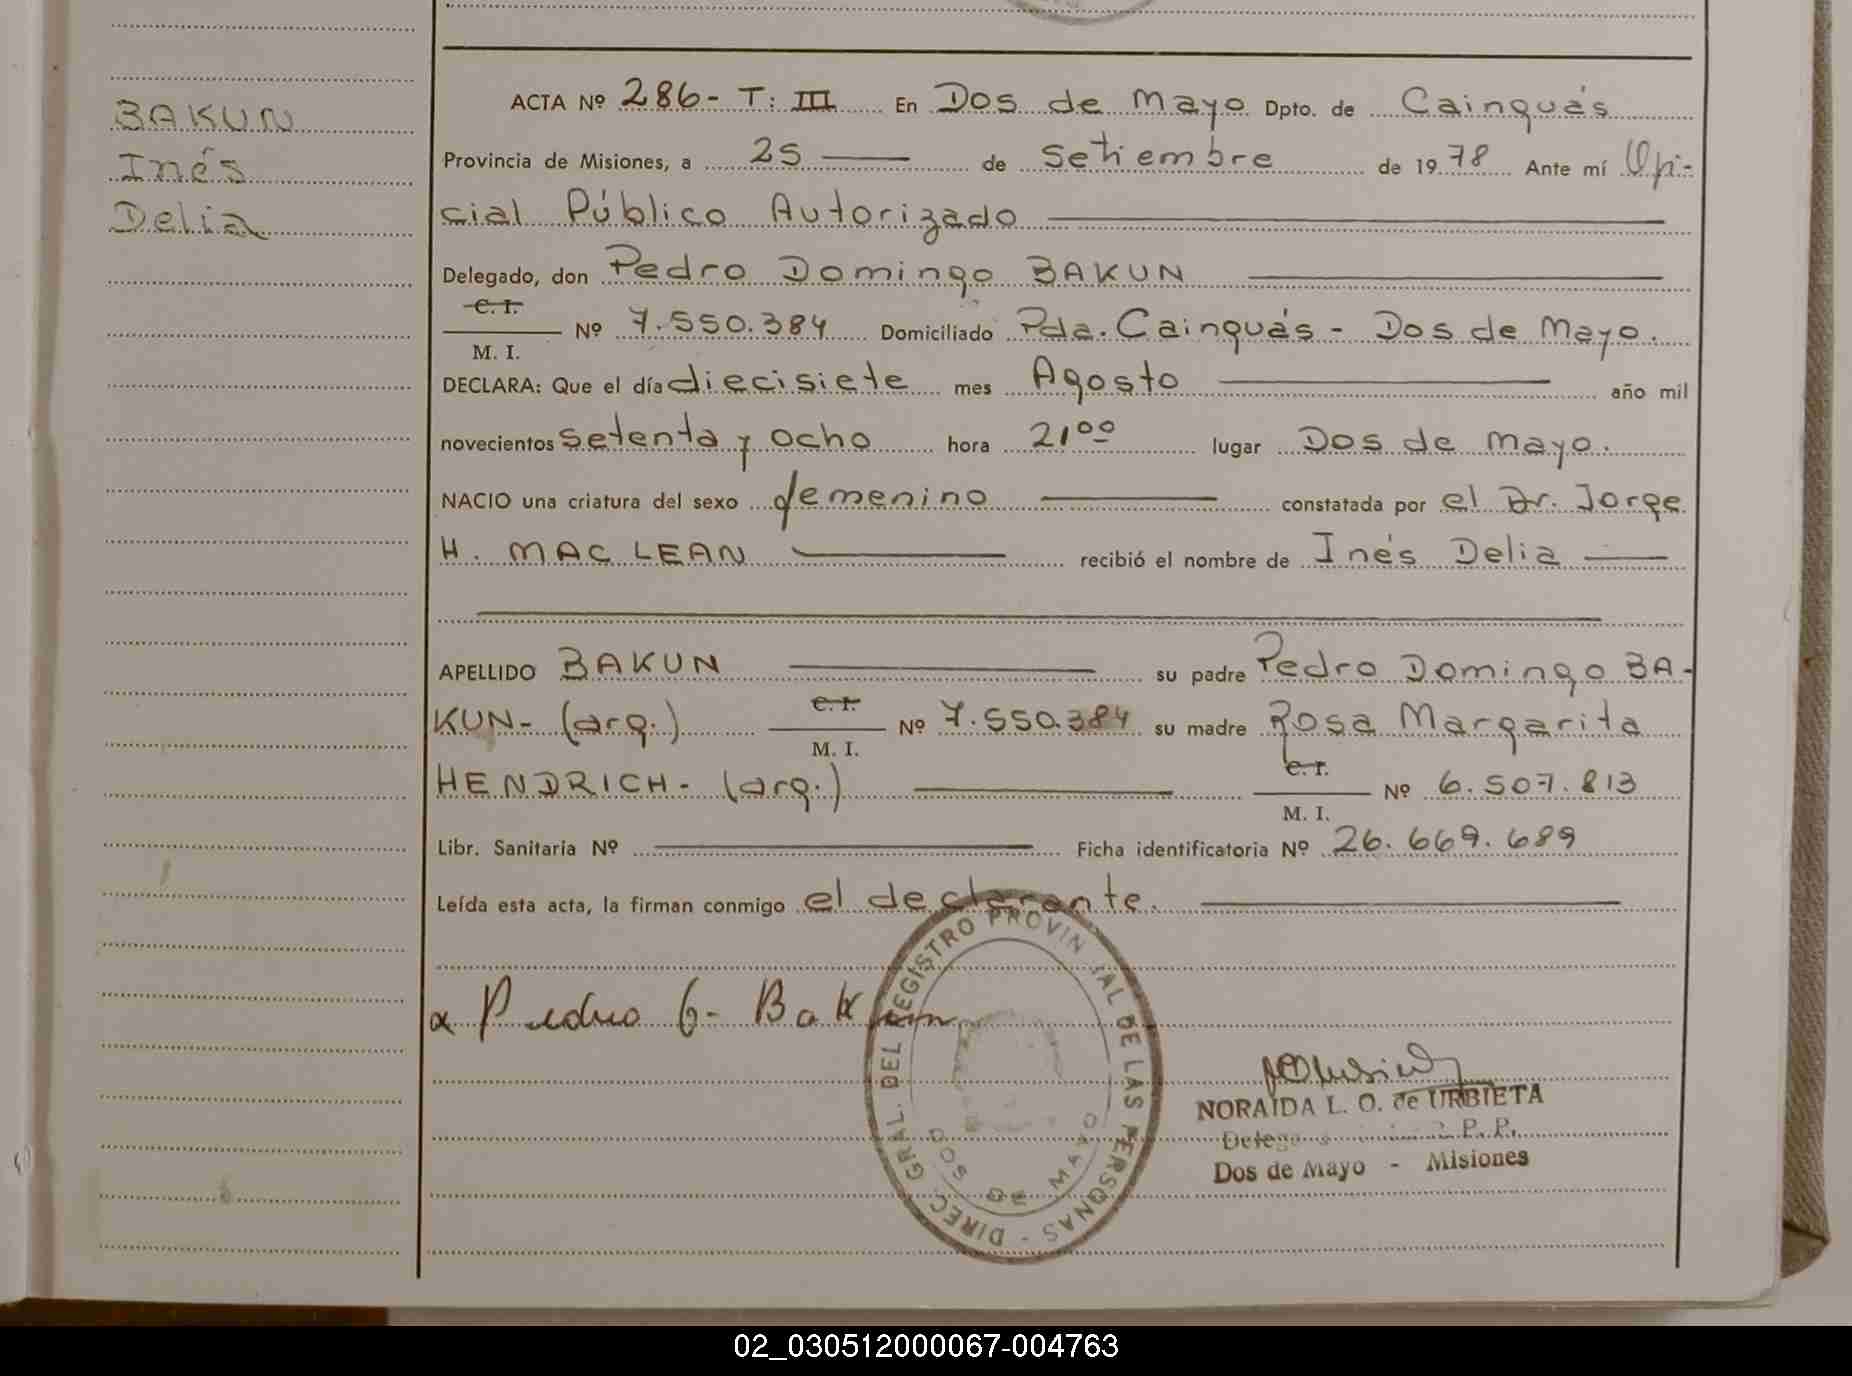 BAKUN
Inés
Delia
ACTA Nº 286- T: III En Dos de Mayo Dpto. de Cainguás
Provincia de Misiones, a 25 de Setiembre de 1978 Ante mí Ofi-
cial Público Autorizado
Delegado, don Pedro Domingo BAKUN
C. I.
M. I. Nº 7.550.384 Domiciliado Pda. Cainguás - Dos de Mayo.
DECLARA: Que el día diecisiete mes Agosto año mil
novecientos setenta y ocho hora 21⁰⁰ lugar Dos de Mayo.
NACIO una criatura del sexo femenino constatada por el Dr. Jorge
H. MAC LEAN recibió el nombre de Inés Delia
APELLIDO BAKUN su padre Pedro Domingo BA-
KUN- (arg.) C. I. M. I. Nº 7.550.384 su madre Rosa Margarita
HENDRICH- (arg.) C. I. M. I. Nº 6.507.813
Libr. Sanitaria Nº Ficha identificatoria Nº 26.669.689
Leída esta acta, la firman conmigo el declarante.
Pedro Bakun
DIREC. GRAL. DEL REGISTRO PROVINIAL DE LAS PERSONAS -
DOS DE MAYO
NORAIDA L. O. de URBIETA
R. P. P.
Dos de Mayo - Misiones
02_030512000067-004763